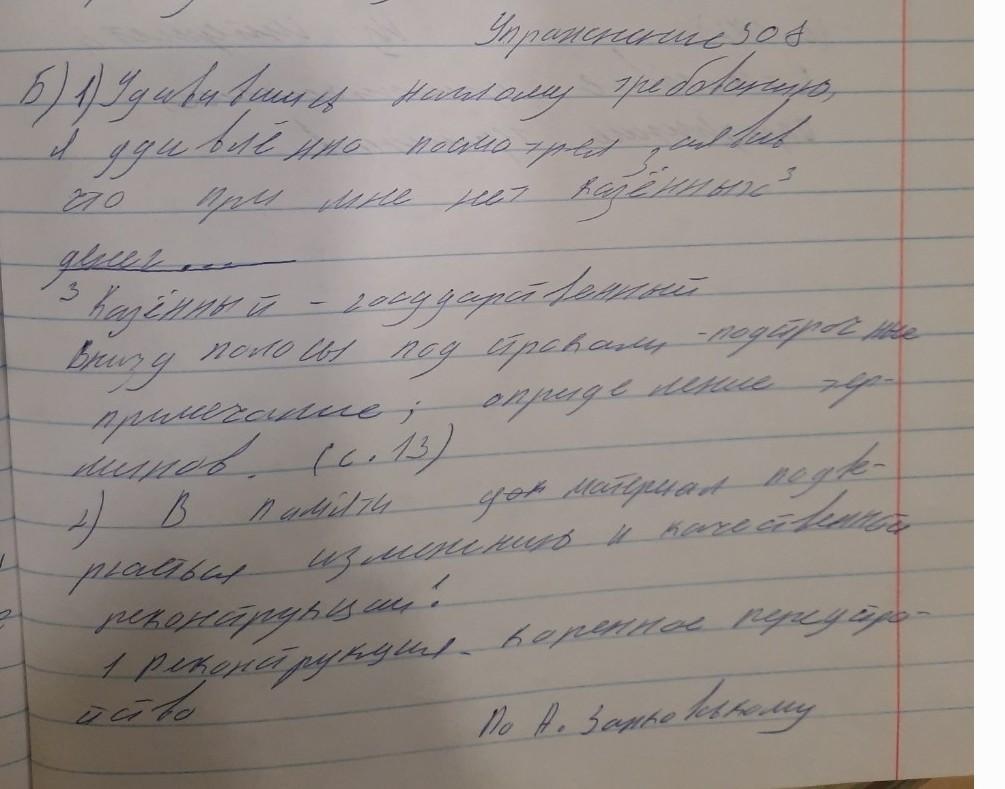 Упражнение 308
Б) 1) Удивившись наглому требованию,
я удивлённо посмотрел заявив
что при мне нет казённых³
денег....
³ Казённый - государственный
Внизу полосы под строками - подстрочные
примечание; определение тер-
минов. (с. 13)
2) В памяти материал подве-
ргаться изменению и качественной
реконструкции¹.
1 Реконструкция - коренное переустро-
йство
По А.